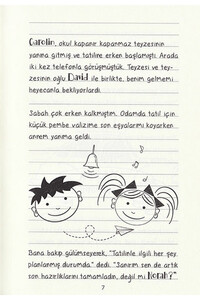 Carolin, okul kapanır kapanmaz teyzesinin
yanına gitmiş ve tatilire erken başlamıştı. Arada
iki kez telefonla görüşmüştük. Teyzesi ve tey-
zesinin oğlu David ile birlikte, benim gelmemi
heyecanla bekliyorlardı.
Sabah çok erken kalkmıştım. Odamda tatil için
küçük pembe valizime son eşyalarımı koyarken
annem yanıma geldi.
Bana bakıp gülümseyerek, "Tatilinle ilgili her şey
planlanmış durumda." dedi. "Janrim sen de artık
son hazırlıklarını tamamladın, değil mi Norah?"
7